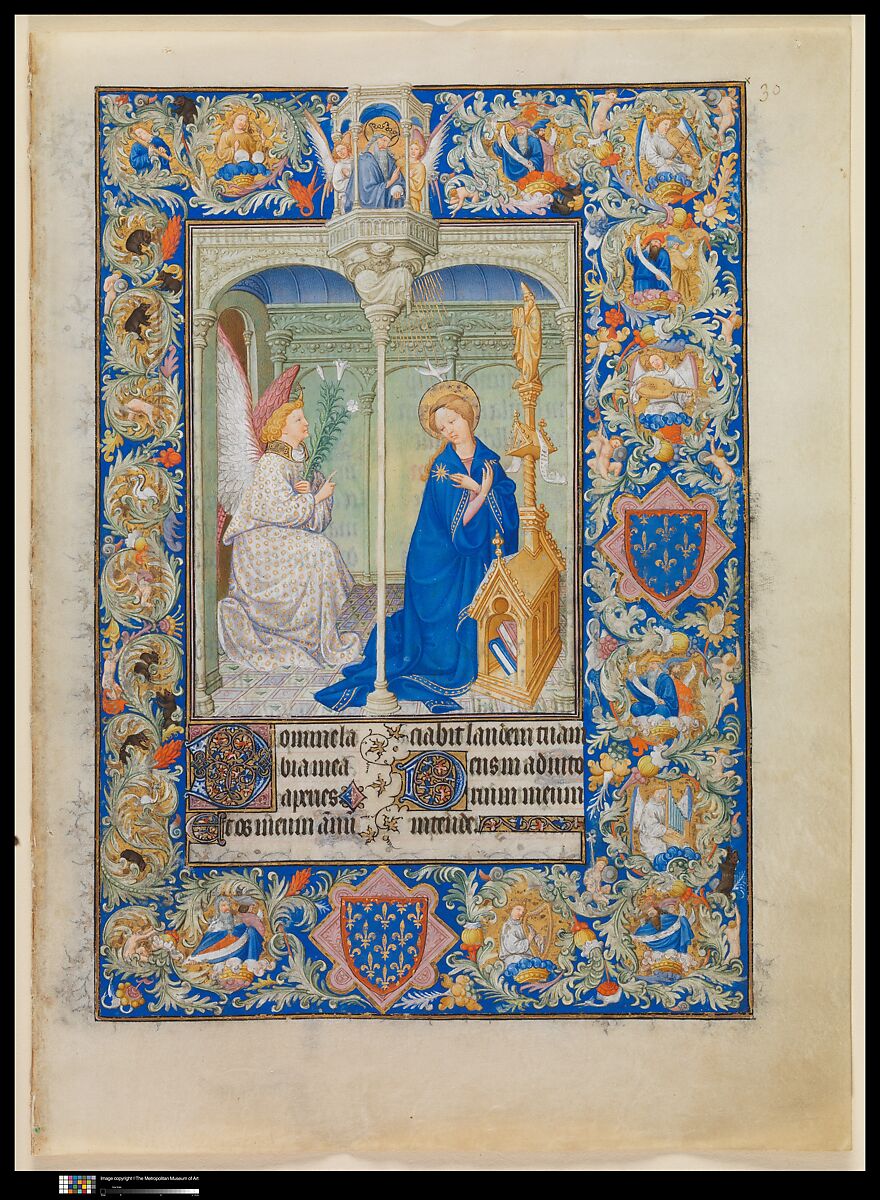 30
Domine la
bia mea
aperies
Et os meum annū
ciabit laudem tuam
Deus in adiuto
rium meum
intende.
Image copyright ©The Metropolitan Museum of Art